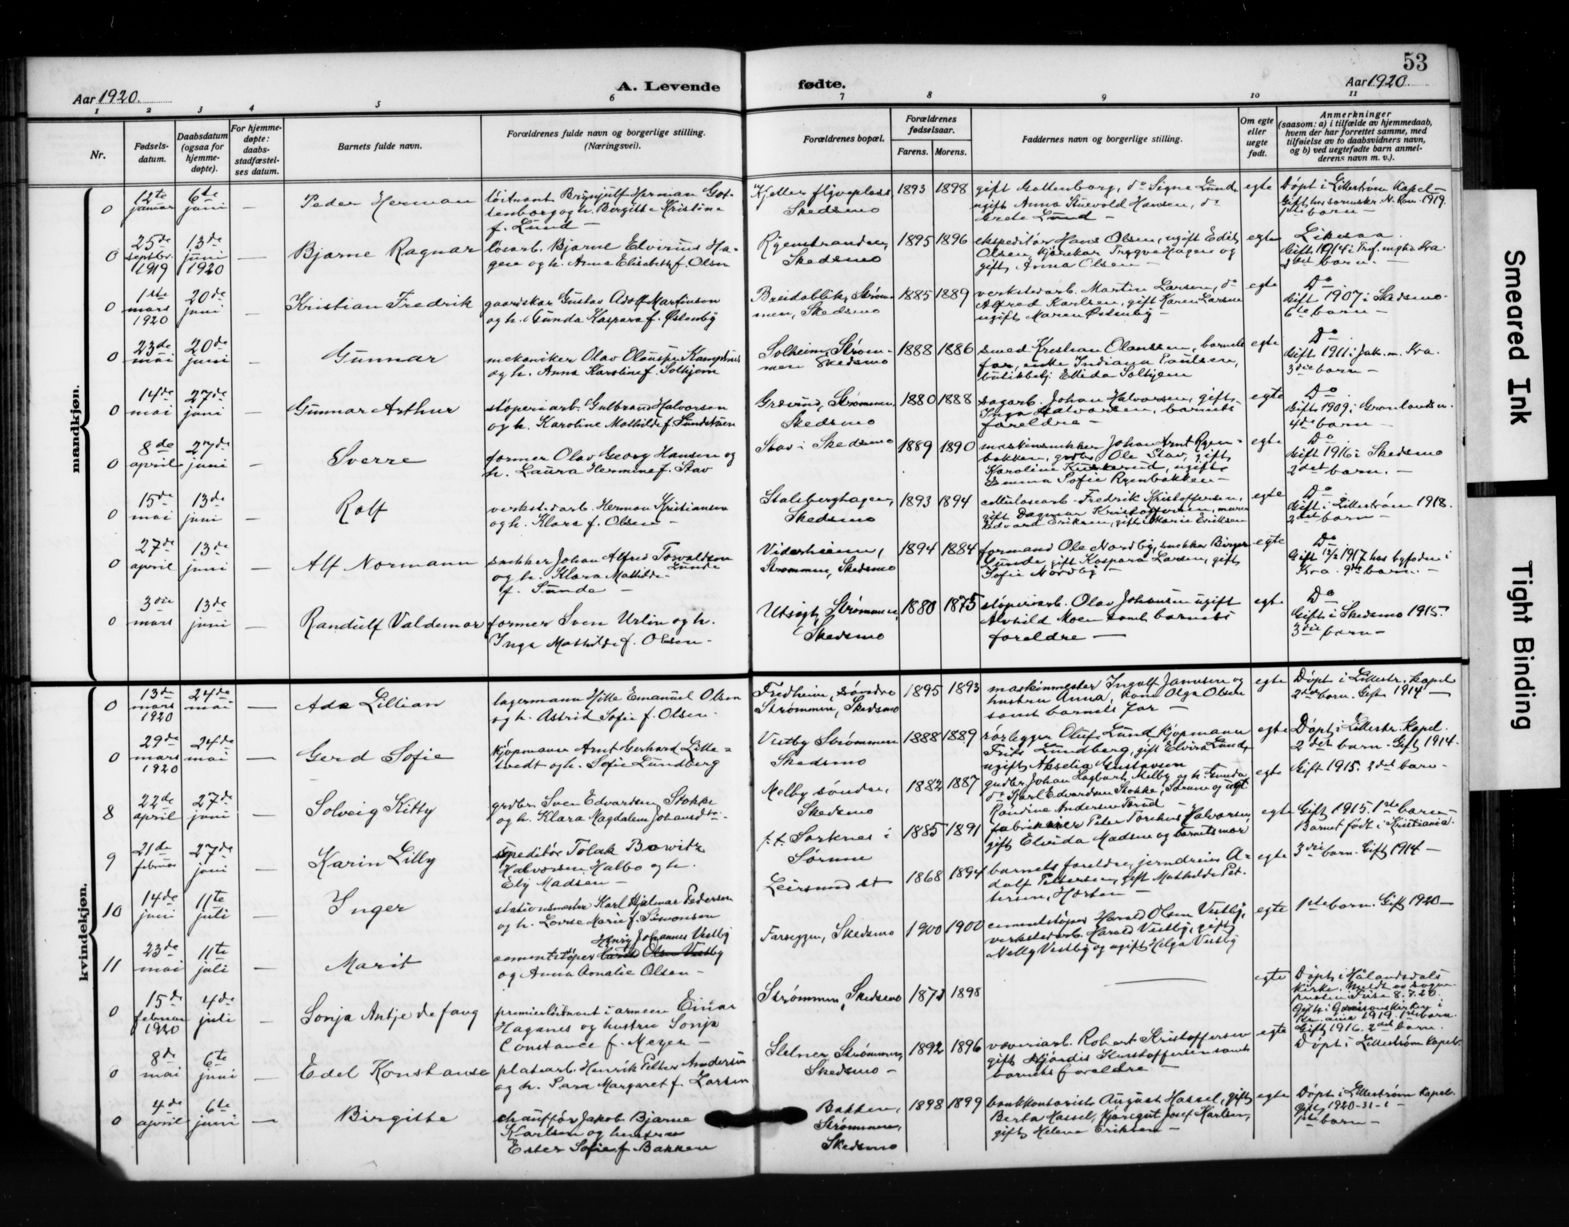 53
Aar 1920.
A. Levende fødte.
Aar 1920.
1 2 3 4 5 6 7 8 9 10 11
Nr.
Fødsels-
datum.
Daabsdatum
(ogsaa for
hjemme-
døpte).
For hjemme-
døpte:
daabs-
stadfæstel-
ses datum.
Barnets fulde navn.
Forældrenes fulde navn og borgerlige stilling.
(Næringsvei).
Forældrenes bopæl.
Forældrenes
fødselsaar.
Farens. Morens.
Faddernes navn og borgerlige stilling.
Om egte
eller
uegte
født.
Anmerkninger
(saasom: a) i tilfælde av hjemmedaab,
hvem der har forrettet samme, med
tilføielse av to daabsvidners navn,
og b) ved uegtefødte barn anmel-
derens navn m. v.).
mandkjøn.
0 12te januar 6te juni — Peder Herman
løitnant Brynjulf Herman Got-
tenborg og h. Birgitte Kristine
f. Lund —
Kjeller flyveplass
Skedsmo
1893 1898
gift Gottenborg, do Signe Lund
ugift Anna Huevold Hansen, do
Grete Lund —
egte
Døpt i Lillestrøm Kapel —
1ste barn —
0 25de septbr. 1919 13de juni 1920 — Bjarne Ragnar
Bjarne Elverius Ha-
gen og h. Anna Elisabeth f. Olsen
Ryenstranden,
Skedsmo
1895 1896
ekspeditør Hans Olsen, ugift Edith
Olsen, Trygve Hagen og
gift Anna Olsen —
egte
Likesaa.
barn. —
0 1ste mars 1920 20de juni — Kristian Fredrik
gaardskar Gustav Adolf Martinson
og h. Gunda Kaspara f. Østenby
Breidablik, Strøm-
men, Skedsmo
1885 1889
verkstedarb. Martin Larsen, do
Alfred Karlsen, gift Karen Larsen
ugift Maren Østenby —
egte
Do
Gift 1907 i Skedsmo.
6te barn —
0 23de mai 20de juni — Gunnar
mekaniker Olav Olausen Kamphus
og h. Anna Karoline f. Solhjem
Solheim, Strøm-
men Skedsmo
1888 1886
smed Kristian Olaussen, barnets
far, enke Indiana Paulsen,
butikkbetj. Ellida Solhjem
egte
Do
Gift 1911 i Jak. m. Kra.
3die barn —
0 14de mai 27de juni — Gunnar Arthur
støperiarb. Gulbrand Halvorsen
og h. Karoline Mathilde f. Lundstuen
Strømmen,
Skedsmo
1880 1888
sagarb. Johan Halvorsen, gift
Inga Halvorsen, barnets
foreldre —
egte
Do
Gift 1909 i Grønlandsm.
4de barn —
0 8de april 27de juni — Sverre
former Olav Georg Hansen og
h. Laura Hermine f. Stav
Stav i Skedsmo
1889 1890
maskinsnikker Johan Arnt Ryen-
bakken, grdbr. Ole Stav, gift
Karoline, ugift
Emma Sofie Ryenbakken —
egte
Do
Gift 1916 i Skedsmo
2det barn. —
0 15de mai 13de juni — Rolf
verkstedarb. Herman Kristiansen
og h. Klara f. Olsen —
Stalsberghagen,
Skedsmo
1893 1894
cellulosearb. Fredrik Kristoffersen,
gift Dagmar Kristoffersen,
Edvard Eriksen, gift Marie Eriksen
egte
Do
Gift i Lillestrøm 1918.
2det barn —
0 27de april 13de juni — Alf Normann
snekker Johan Alfred Torvaldsen Lunde
og h. Klara Mathilde
f. Lunde —
Vidarheim,
Strømmen, Skedsmo
1894 1884
formand Ole Nordby, snekker Birger
Lunde, gift Kaspara Larsen, gift
Sofie Nordby —
egte
Do
1917 hos byfoden i
Kra. barn. —
0 3die mars 13de juni — Randulf Valdemar
former Sven Urlin og h.
Inga Mathilde f. Olsen —
Utsigt, Strømmen,
Skedsmo
1880 1875
støperiarb. Olav Johansen ugift
Alvhild Moen samt barnets
foreldre —
egte
Do
Gift i Skedsmo 1915.
3die barn —
kvindekjøn.
0 13de mars 1920 24de mai — Ada Lillian
lagermann Emanuel Olsen
og h. Astrid Sofie f. Olsen —
Fredheim, søndre
Strømmen, Skedsmo
1895 1893
maskinmester Ingolf Jansen og
hustru Anna, kone Olga Olsen
samt barnets far —
egte
Døpt i Lillestr. Kapel
2det barn. Gift 1914 —
0 29de mars 1920 24de mai — Gerd Sofie
kjøpmann Arnt Gerhard Lille-
tvedt og h. Sofie Lundberg
Vestby Strømmen
Skedsmo
1888 1889
rørlegger Oluf Lund, kjøpmann
Frits Lundberg, gift Elvira Lund,
ugift Akselia Gustavsen
egte
Døpt i Lillestr. Kapel.
2det barn. Gift 1914.
8 22de april 27de juni — Solveig Kitty
grdbr. Sven Edvardsen Stokke
og h. Klara Magdalene Johansd.
Melby søndre,
Skedsmo
1882 1887
grdbr. Johan Hagbart Melby og h. Gunda
do Karl Edvardsen Stokke, Sørum og ugift
Randine Andersen
egte
Gift 1915. 2det barn —
9 21de februar 27de juni — Karin Lilly
speditør Tolak Bowitz
Halvorsen Halbo og h.
Elly Madsen —
p.t. Sørknes i
Sørum
1885 1891
fabrikeier Peter Torsten Halvorsen
gift Elvida Madsen og barnets mor
egte
Gift 1915. 1ste barn —
Barnet født i Kristiania.
10 14de juni 11te juli — Inger
stationsmester Karl Hjalmar Pedersen
og h. Lovise Marie f. Simonsen
Leirsund st
1868 1894
barnets foreldre, jerndreier A-
dolf Pettersen, gift Mathilde Pet-
tersen, Horten —
egte
3die barn. Gift 1914 —
11 23de mai 11te juli — Marit
cementstøper Henry Johannes Vestby
og Anna Amalie Olsen —
Farseggen, Skedsmo
1900 1900
cementstøper Harald Olsen Vestby,
verkstedarb. Harald Vestby, gift
Nelly Vestby og ugift Helga Vestby
egte
1ste barn. Gift 1920 —
0 15de februar 1920 4de juli Sonja Antje de fang
premierløitnant i armeen Einar
Haganes og hustru Sonja
Constance f. Meyer —
Strømmen, Skedsmo
1873 1898
egte
Døpt i Hålandsdals
kirke. Meldt av sogne-
presten i Fusa 8.7.20.
1919. 1ste barn.
0 8de mai 6te juni — Edel Konstanse
platearb. Henrik Petter Andersen
og h. Sara Margaret f. Larsen
Strømmen,
Skedsmo —
1892 1896
væveriarb. Robert Kristoffersen
gift Hjørdis Kristoffersen samt
barnets foreldre —
egte
Gift 1916. 2det barn.
Døpt i Lillestrøm kapel.
0 4de april 6te juni — Birgitte
chauffør Jakob Bjarne
Karlsen og hustru
Ester Sofie f. Bakken
Bakken,
Strømmen,
Skedsmo
1898 1899
bankkasserist August Hassel, gift
Berta Hassel, Josef Karlsen,
gift Helene Eriksen —
egte
Døpt i Lillestrøm Kapel.
Gift 1920
1ste barn —
Smeared Ink
Tight Binding